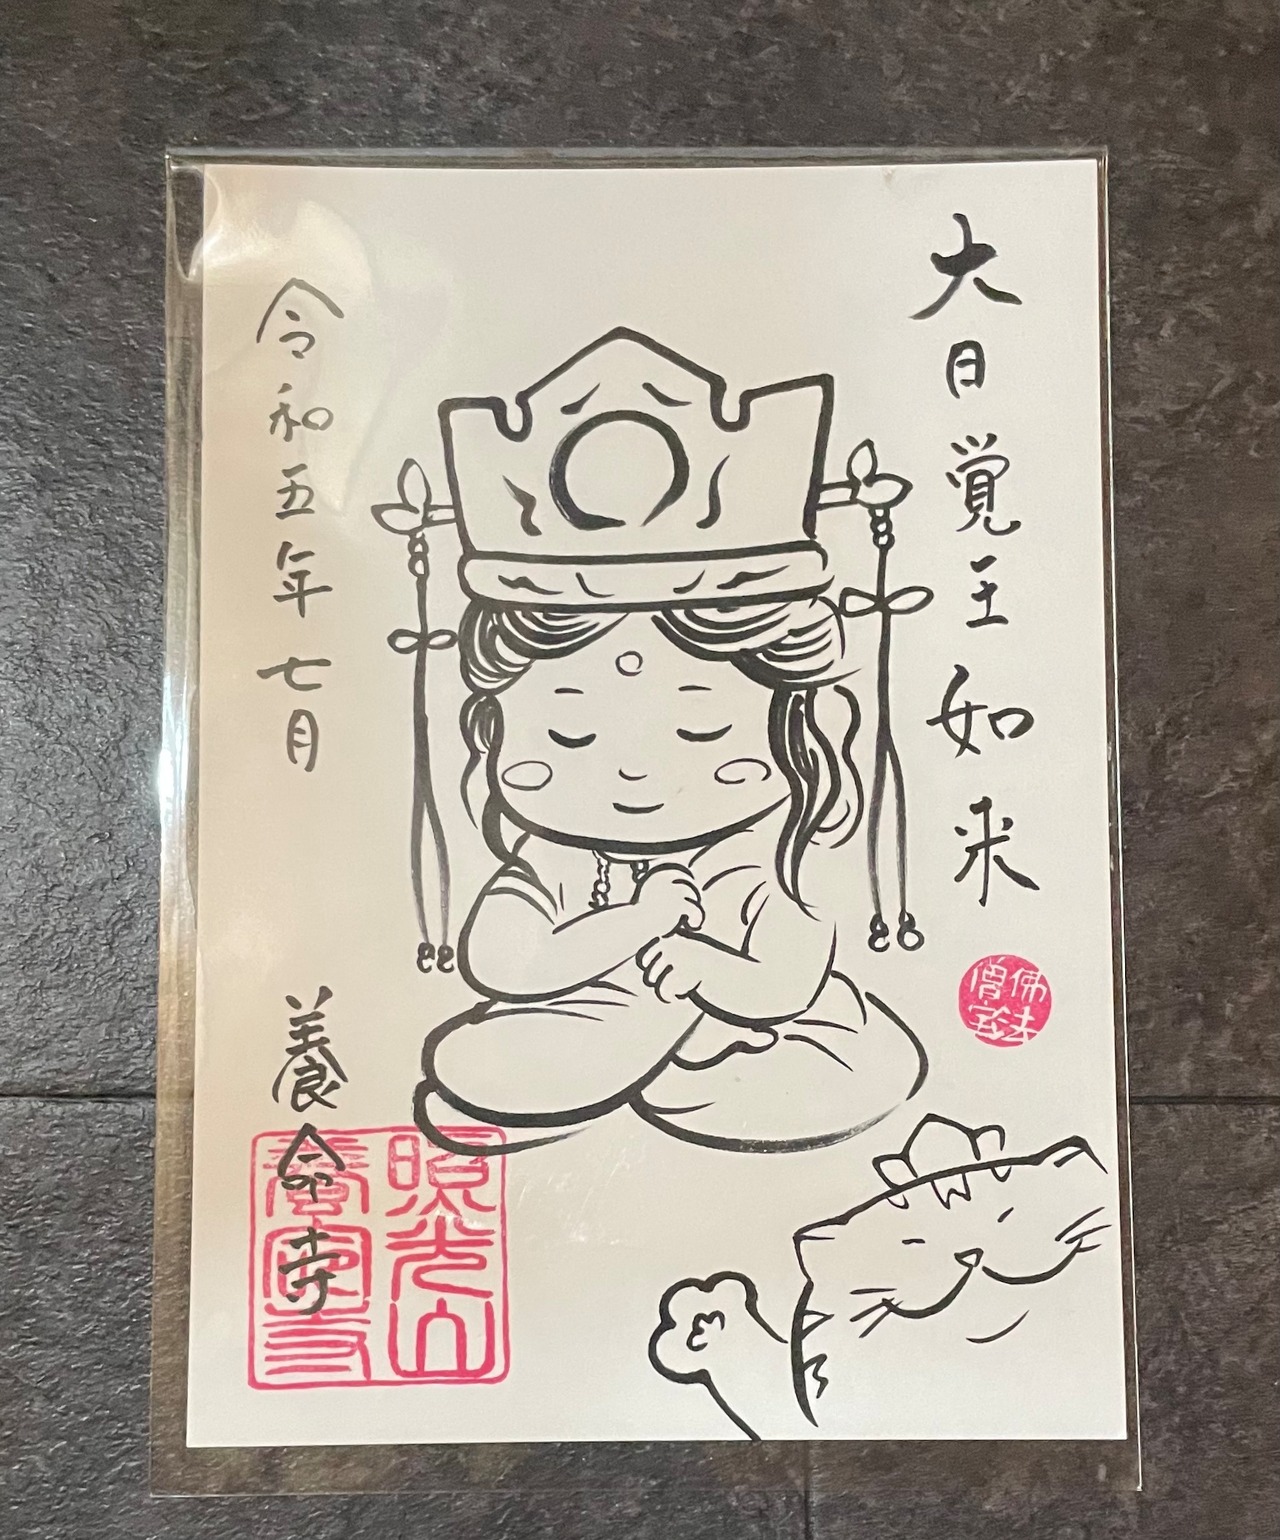 大日覚王如来
佛法僧宝
令和五年七月
養命寺
照光山
養命寺